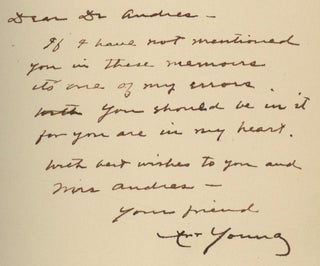 Dear Dr Andres -
If I have not mentioned
you in these memoirs
it's one of my errors.
You should be in it
for you are in my heart.
With best wishes to you and
Mrs Andres -
Your friend
Young